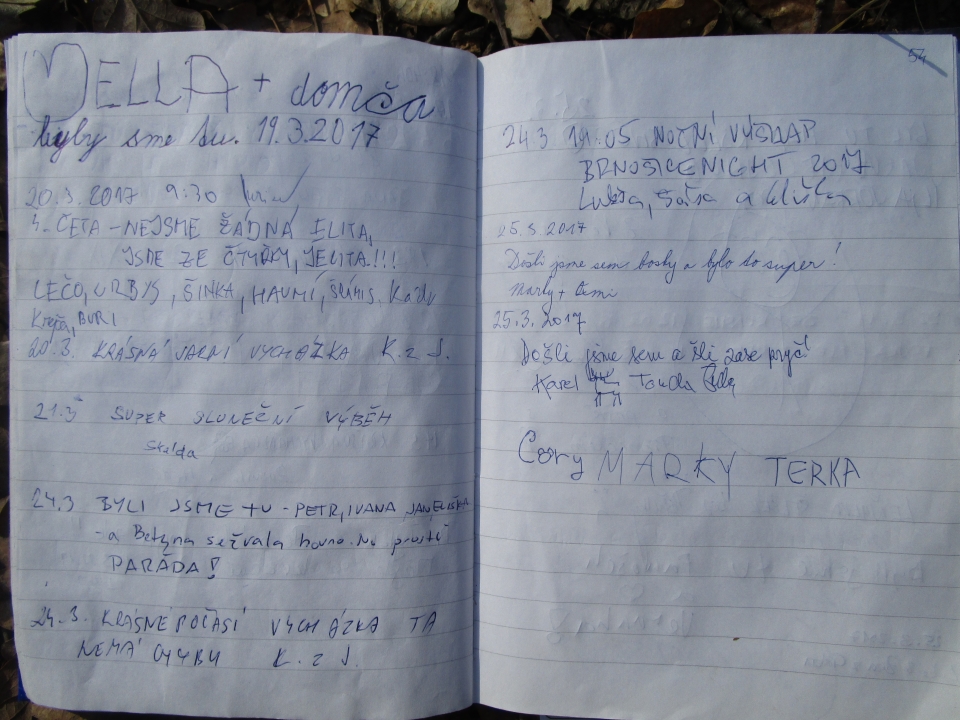 VELLA + domča
byly sme tu. 19.3.2017
20.3.2017 9:30
4. ČETA - NEJSME ŽÁDNÁ ELITA,
JSME ZE ČTYŘKY, JELITA!!!
LEČO, URBYS, ŠINKA, HAUMÍ,
BURI
20.3. KRÁSNÁ JARNÍ VYCHÁZKA K. z J.
21.3 SUPER SLUNEČNÍ VÝBĚH
24.3 BYLI JSME TU - PETR, IVANA
- a Betyna sežvala hovno. No prostě
PARÁDA!
24.3. KRÁSNÉ POČASÍ VYCHÁZKA TA
NEMÁ CHYBU K. z J.
54
24.3 19:05 NOČNÍ VÝŠLAP
BRNOSICENIGHT 2017
a
25.3 2017
Došli jsme sem bosky a bylo to super!
25.3.2017
Došli jsme sem a šli zase pryč!
Karel Tonda
Cory MARKY TERKA